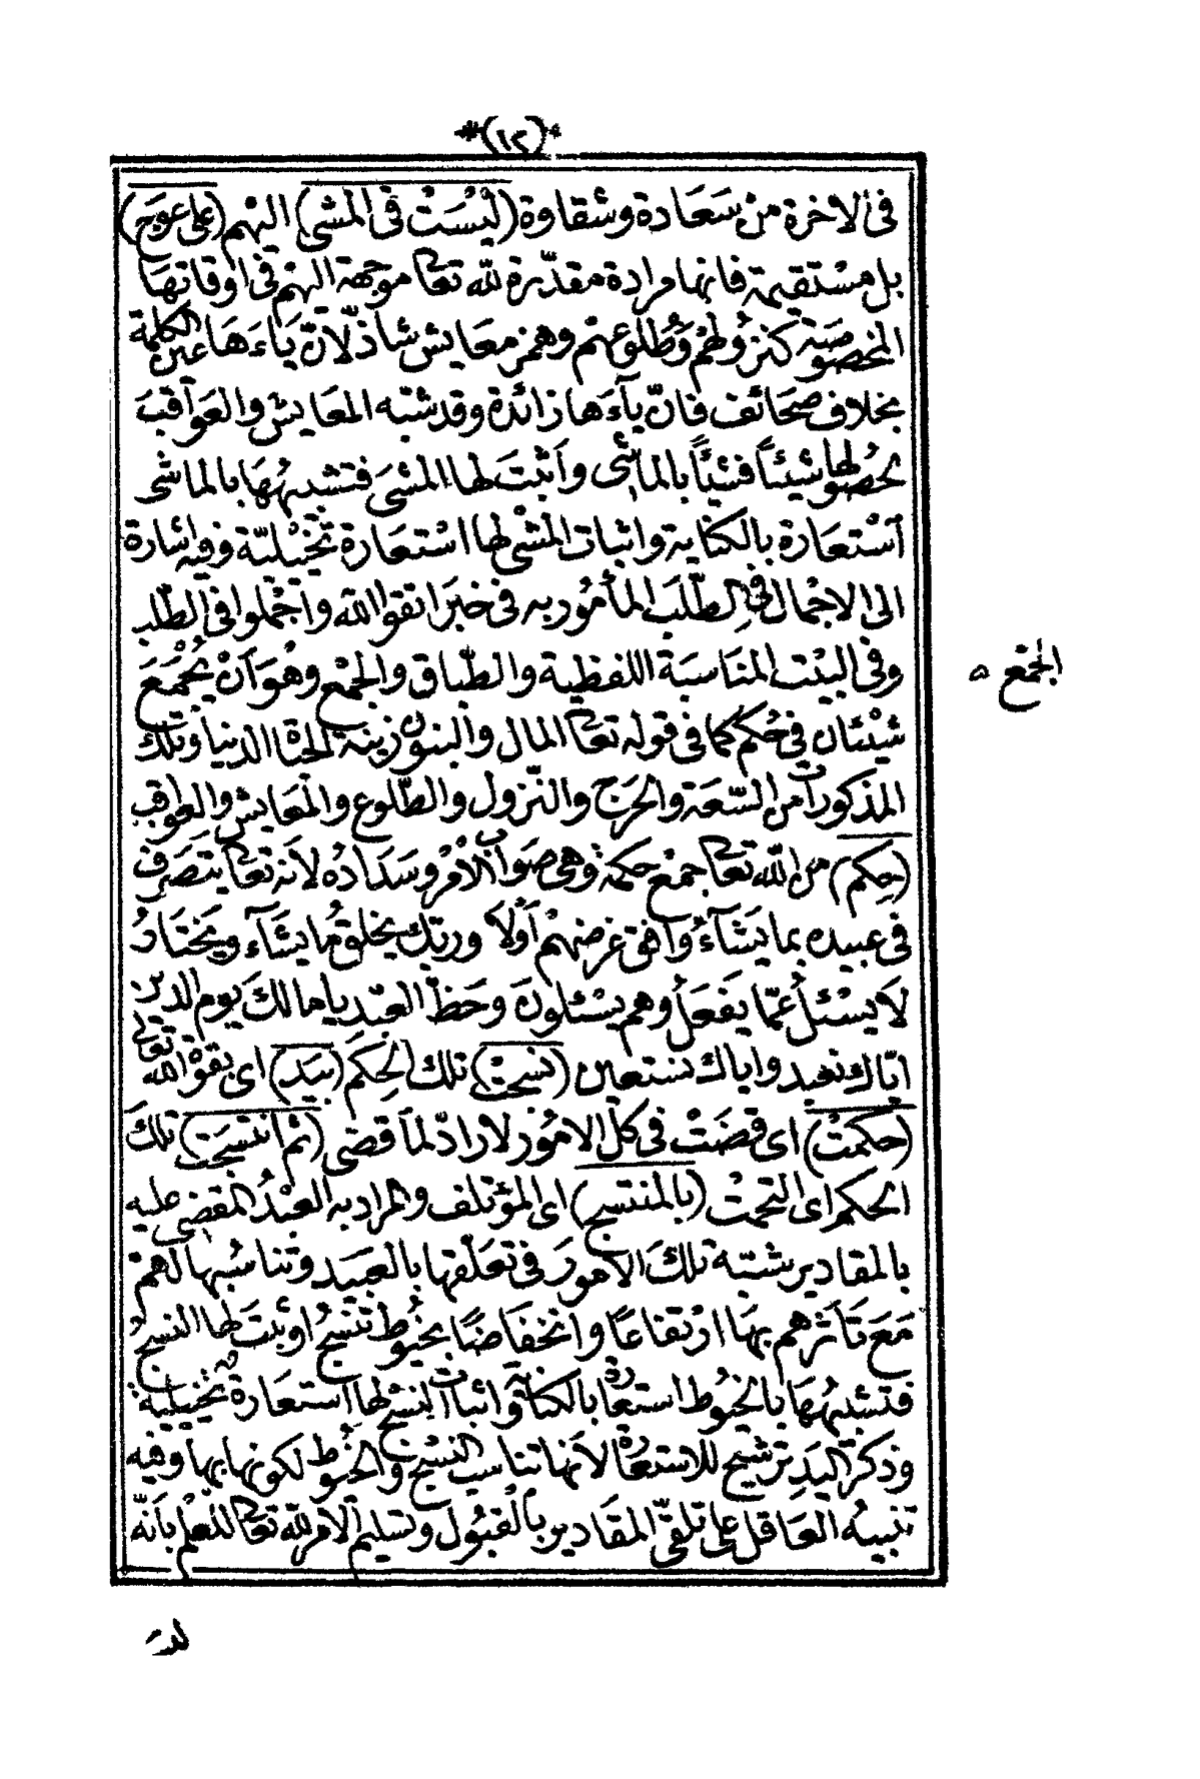 *(١٢)*
فى الاخرة من سَعَادة وشقاوة (لَيْسَتْ فى المشى) اليهم (على عوج)
بل مسْتقيمة فانها مرادة مقدّرة لله تعالى موجهة اليهم فى اوقاتهَا
المخصوصة كنزُولهمْ وَطُلوعهم وهمز معَايش شاذ لّانّ يَاءَهَا عين الكلمة
بخلاف صحَائف فانّ يآءَها زائدة وقد شبّه المعَايش والعَوَاقبَ
بحُصولها شيئاً فشيْئاً بالماشى وَاَثبتَ لها المشىَ فتشبيهُهَا بالماشى
اسْتعَارة بالكناية واثبات المشْى لها اسْتعَارة تخْييليّة وفيه اشارة
الى الاجْمال فى الطّلبَ المأمُور به فى خبَر اتقوا الله وَاَجْملوا فى الطّلب
وفى البيْت المنَاسَبَة اللفظية والطّباق والجمْع وهُوَ اَنْ يُجْمَعَ
شيْئان فى حُكم كما فى قوله تعالى المال والبنون زينة الحيٰوة الدنيا وتلك
المذكورات من السّعَة والحرَج والنّزول والطّلوع والمعَايش والعواقب
(حِكم) من الله تعالى جمْع حكمة وهى صَوَاب الْاَمْر وسَدَادُه لاَنه تعالى يتصَرف
فى عبيده بما يَشَآءُ وَافق غرضهُمْ اَوْلاَ وربّك يخلقُ ما يشَآء ويَختَارُ
لاَ يسْئلُ عَمّا يفعَلُ وهم يسْئلونَ وحَظّ العبْد يا مالكَ يوم الدين
ايّاك نعبد واياك نستعين (نسجتْ) تلك الحِكَم (بيَدٍ) اى بقوّة الله تعالى
(حُكمتْ) اى قضَتْ فى كلّ الامُور لا رادّ لمَا قضى (ثم انتسَجَتْ) تلكَ
الحكم اى التحمتْ (بالمنتسج) اى المؤتلف والمراد به العَبْدُ المقضى عليه
بالمقادير شبّه تلكَ الامورَ فى تعَلّقها بالعَبيد وتناسُبها لهم
مَعَ تأثرهم بهَا ارْتقاعًا وانخفَاضًا بخيُوط تنسجُ واثبتَ لها النسجَ
فتشبيهُهَا بالخيُوط استعارة بالكناية واثبات النسْج لها استعَارة تخييلية
وذكرَ اليَدِ ترشيح للاستعارة لاَنها تناسب النسْجَ والخيُوط لكونها بها وفيه
تنبيه العَاقل على تلقّى المقَادير بالْقبُول وتسليم الامر لله تعالى للعلْم بأنّه
الجمْع ٥